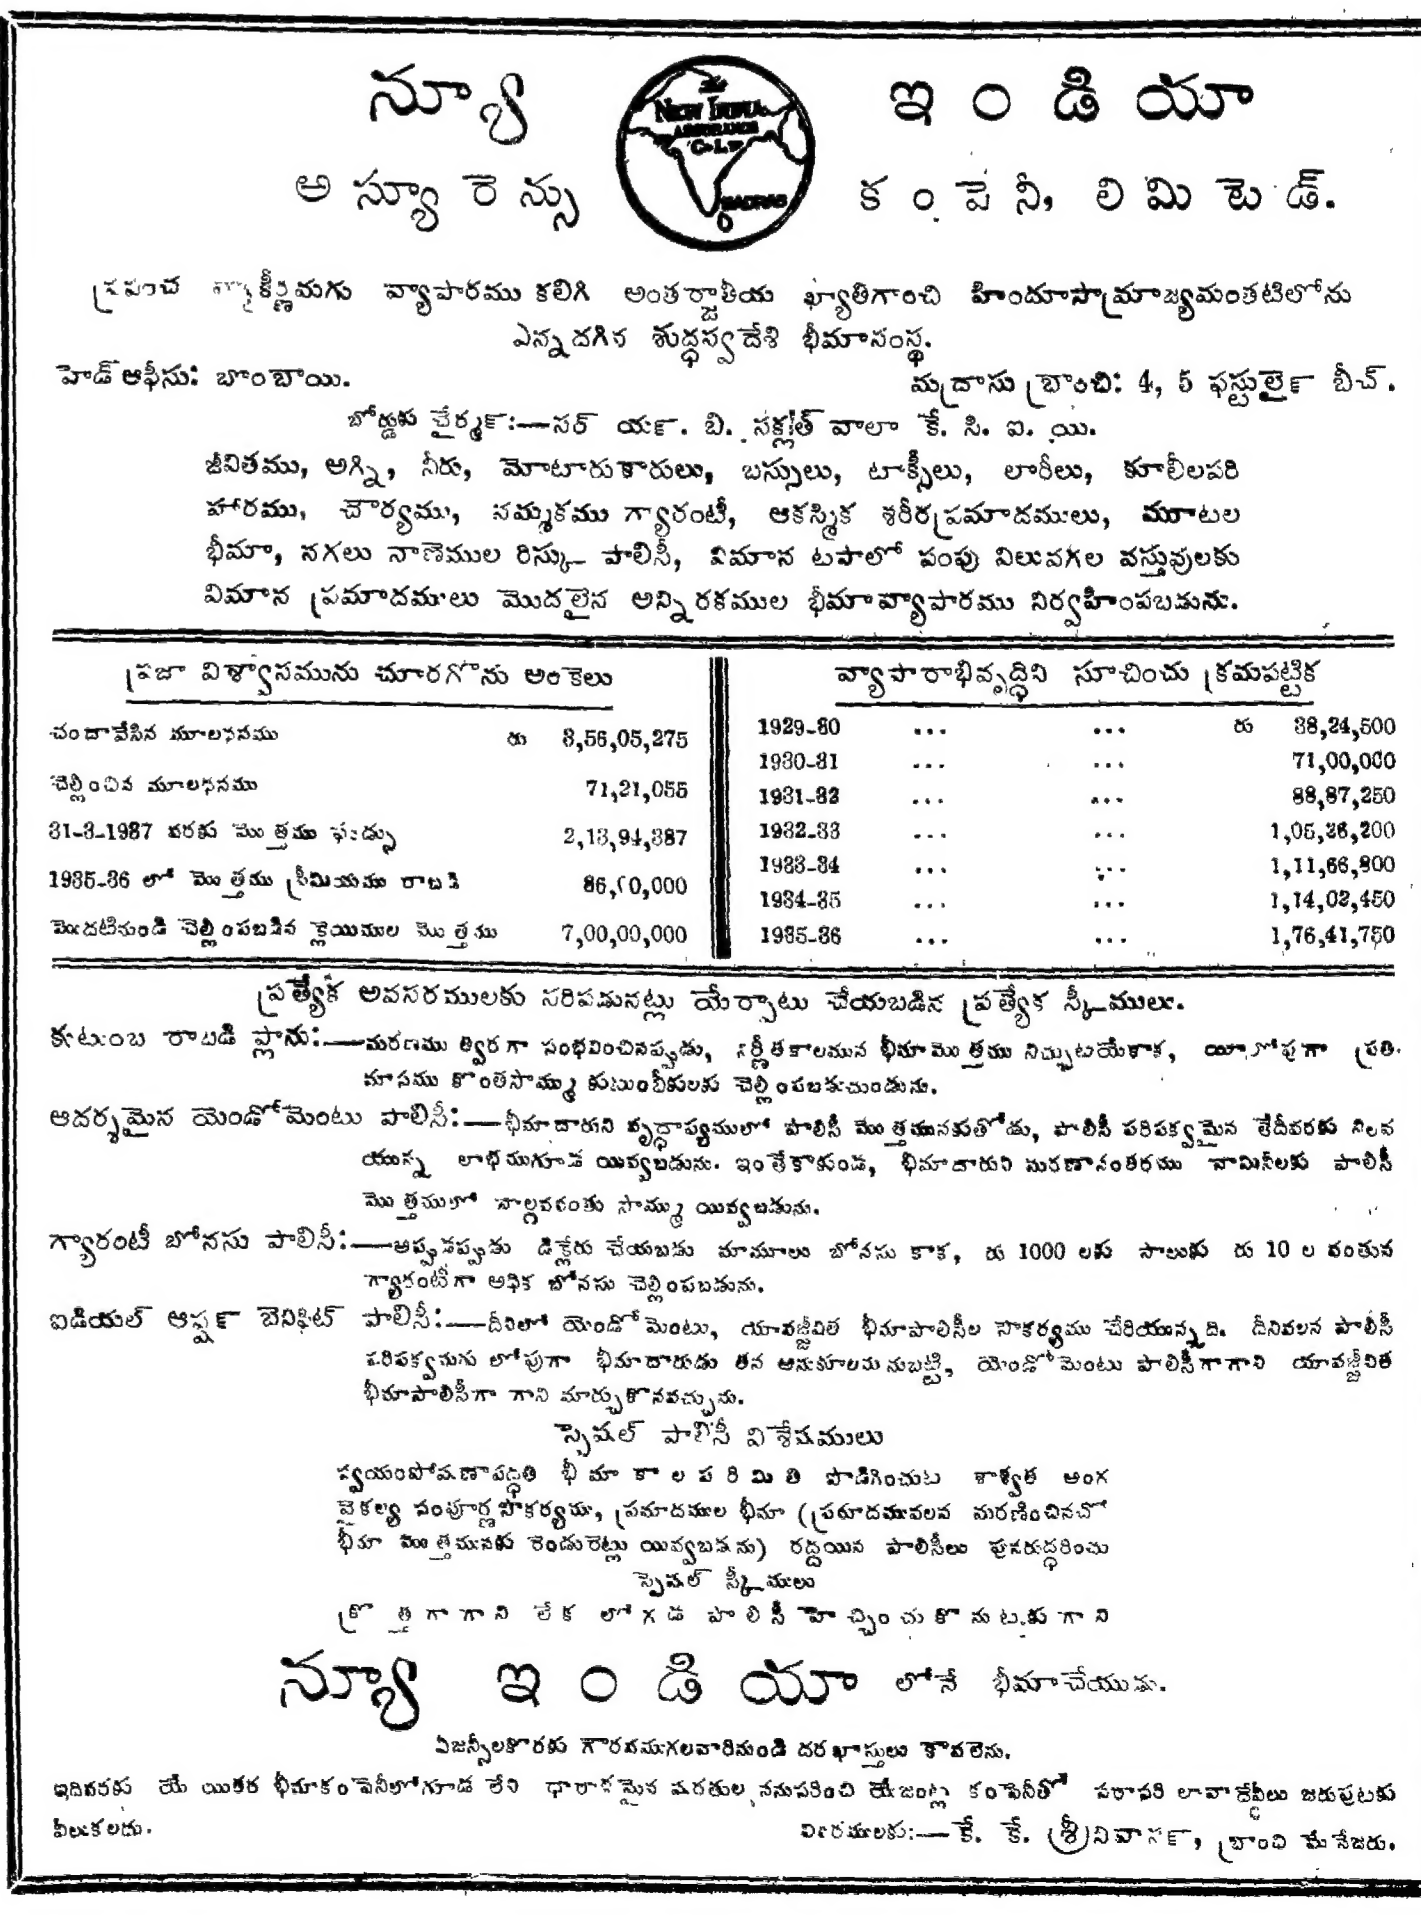 న్యూ ఇండియా
NEW INDIA
ASSURANCE
Co LTD
MADRAS
అస్యూరెన్సు కంపెనీ, లిమిటెడ్.
ప్రపంచ వ్యాకీర్ణమగు వ్యాపారము కలిగి అంతర్జాతీయ ఖ్యాతిగాంచి హిందూసామ్రాజ్యమంతటిలోను
ఎన్నదగిన శుద్ధస్వదేశి భీమాసంస్థ.
హెడ్ ఆఫీసు: బొంబాయి.
మద్రాసు బ్రాంచి: 4, 5 ఫస్టులైౝ బీచ్.
బోర్డుకు చైర్మౝ:—సర్ యౝ. బి. సక్లత్ వాలా కే. సి. ఐ. యి.
జీవితము, అగ్ని, నీరు, మోటారుకారులు, బస్సులు, టాక్సీలు, లారీలు, కూలీలపరి
హారము, చౌర్యము, నమ్మకము గ్యారంటీ, ఆకస్మిక శరీరప్రమాదములు, మూటల
భీమా, నగలు నాణెముల రిస్కు పాలిసీ, విమాన టపాలో పంపు విలువగల వస్తువులకు
విమాన ప్రమాదములు మొదలైన అన్నిరకముల భీమావ్యాపారము నిర్వహింపబడును.
ప్రజా విశ్వాసమును చూరగొను అంకెలు
చందావేసిన మూలధనము రు 3,56,05,275
చెల్లించిన మూలధనము 71,21,055
31-3-1937 వరకు మొత్తము ఫండ్సు 2,13,94,387
1935-36 లో మొత్తము ప్రీమియము రాబడి 86,00,000
మొదటినుండి చెల్లింపబడిన క్లెయిముల మొత్తము 7,00,00,000
వ్యాపారాభివృద్ధిని సూచించు క్రమపట్టిక
1929-30 ... ... రు 38,24,500
1930-31 ... ... 71,00,000
1931-32 ... ... 88,87,250
1932-33 ... ... 1,05,36,200
1933-34 ... ... 1,11,66,800
1934-35 ... ... 1,14,03,450
1935-36 ... ... 1,76,41,750
ప్రత్యేక అవసరములకు సరిపడునట్లు యేర్పాటు చేయబడిన ప్రత్యేక స్కీములు.
కుటుంబ రాబడి ప్లాను:—మరణము త్వరగా సంభవించినప్పుడు, నిర్ణీతకాలమున భీమామొత్తము నిచ్చుటయేకాక, యీలోపుగా ప్రతి
మాసము కొంతసొమ్ము కుటుంబీకులకు చెల్లింపబడుచుండును.
ఆదర్శమైన యెండోమెంటు పాలిసీ:—భీమాదారుని వృద్ధాప్యములో పాలిసీ మొత్తమునకుతోడు, పాలిసీ పరిపక్వమైన తేదీవరకు నిలవ
యున్న లాభముగూడ యివ్వబడును. ఇంతేకాకుండ, భీమాదారుని మరణానంతరము నామినీలకు పాలిసీ
మొత్తములో నాల్గవవంతు సొమ్ము యివ్వబడును.
గ్యారంటీ బోనసు పాలిసీ:—అప్పుడప్పుడు డిక్లేరు చేయబడు మామూలు బోనసు కాక, రు 1000 లకు సాలుకు రు 10 ల వంతున
గ్యారంటీగా అధిక బోనసు చెల్లింపబడును.
ఐడియల్ ఆప్షౝ బెనిఫిట్ పాలిసీ:—దీనిలో యెండోమెంటు, యావజ్జీవిత భీమాపాలిసీల సౌకర్యము చేరియున్నది. దీనివలన పాలిసీ
పరిపక్వమగు లోపుగా భీమాదారుడు తన అనుకూలమునుబట్టి, యెండోమెంటు పాలిసీగాగాని యావజ్జీవిత
భీమాపాలిసీగా గాని మార్చుకొనవచ్చును.
స్పెషల్ పాలిసీ విశేషములు
స్వయంపోషణాపద్ధతి భీమా కాలపరిమితి పొడిగించుట శాశ్వత అంగ
వైకల్య సంపూర్ణసౌకర్యము, ప్రమాదముల భీమా (ప్రమాదమువలన మరణించినచో
భీమా మొత్తమునకు రెండురెట్లు యివ్వబడును) రద్దయిన పాలిసీలు పునరుద్ధరించు
స్పెషల్ స్కీములు
క్రొత్తగాగాని లేక లోగడ పాలిసీ హెచ్చించుకొనుటకుగాని
న్యూ ఇండియా లోనే భీమాచేయుడు.
ఏజన్సీలకొరకు గౌరవముగలవారినుండి దరఖాస్తులు కావలెను.
ఇదివరకు యే యితర భీమాకంపెనీలోగూడ లేని ధారాళమైన షరతుల ననుసరించి యేజంట్లు కంపెనీతో సరాసరి లావాదేవీలు జరుపుటకు
వీలుకలదు.
వివరములకు:—కే. కే. శ్రీనివాసౝ, బ్రాంచి మేనేజరు.